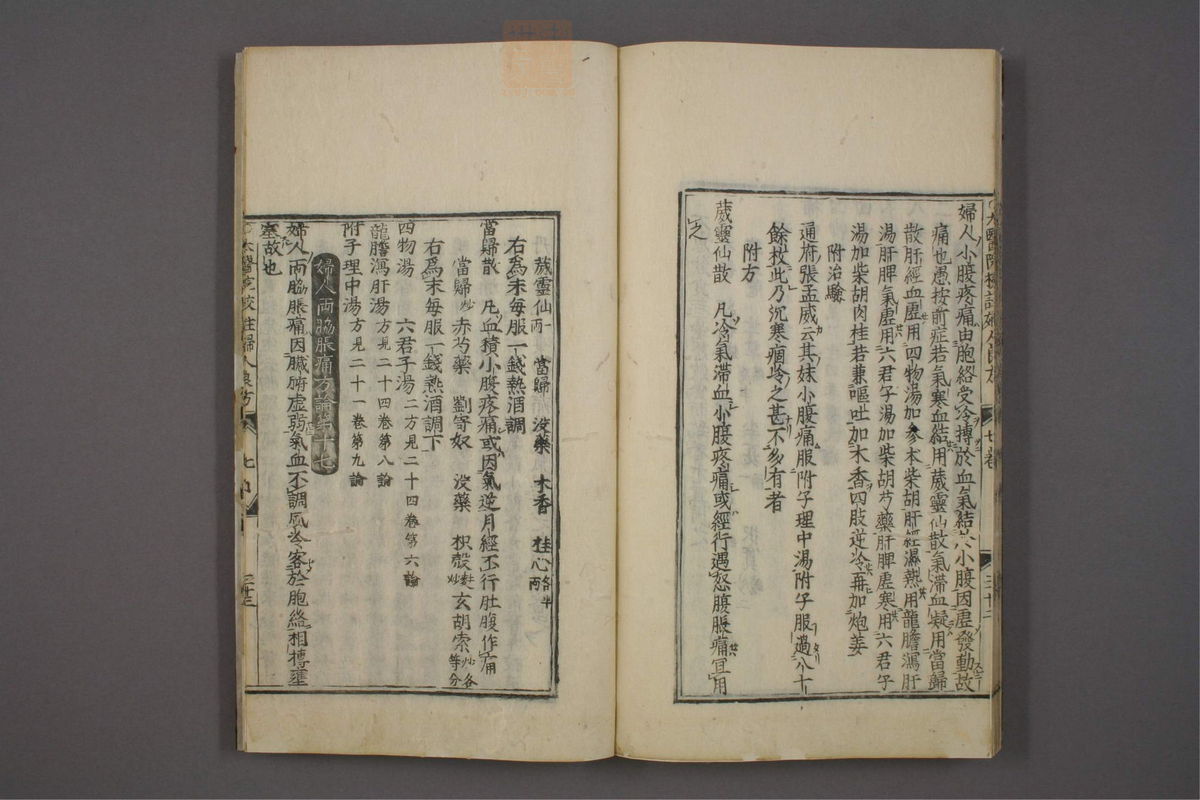 婦人小腹疼痛由胞絡受冷搏於血氣結於小腹因虛發動故
痛也愚按前症若氣寒血結用葳靈仙散氣滯血凝用當歸
散肝經血虛用四物湯加參朮柴胡肝經濕熱用龍膽瀉肝
湯肝脾氣虛用六君子湯加柴胡芍藥肝脾虛寒用六君子
湯加柴胡肉桂若兼嘔吐加木香四肢逆冷再加炮姜
附治驗
通府張孟威云其妹小腹痛服附子理中湯附子服過八十
餘枚此乃沉寒痼冷之甚不多有者
附方
葳靈仙散　凡冷氣滯血小腹疼痛或經行遇怒腹脹痛宜用
之
葳靈仙一兩　當歸　沒藥　木香　桂心各半兩
右為末每服一錢熱酒調
當歸散　凡血積小腹疼痛或因氣逆月經不行肚腹作痛
當歸炒　赤芍藥　劉寄奴　沒藥　枳殼麸炒　玄胡索炒各等分
右為末每服一錢熱酒調下
四物湯　六君子湯二方見二十四卷第六論
龍膽瀉肝湯方見二十四卷第八論
附子理中湯方見二十一卷第九論
婦人兩脇脹痛方論第十七
婦人兩脇脹痛因臟腑虛弱氣血不調風冷客於胞絡相搏壅
塞故也
七卷
三十二
七卷
三十三